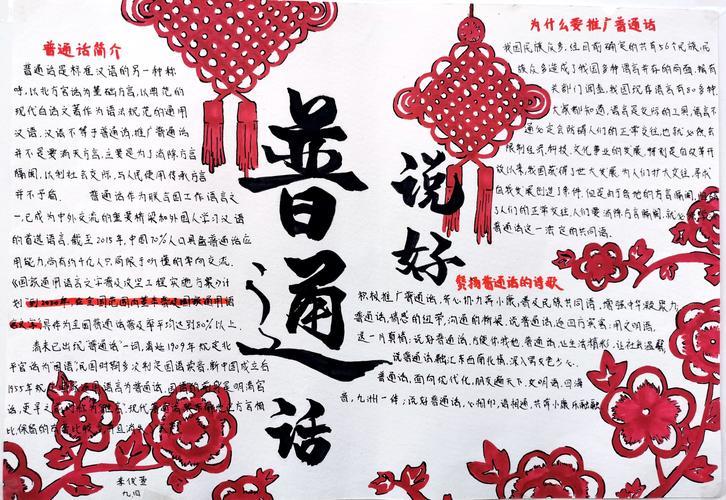 普通话简介
普通话是标准汉语的另一种称
呼,以北方官话为基础方言,以典范的
现代白话文著作为语法规范的通用
汉语。汉语不等于普通话,推广普通话
并不是要消灭方言,主要是为了消除方言
隔阂,以利社会交际,与人民使用传承方言
并不矛盾。 普通话作为联合国工作语言之
一,已成为中外交流的重要桥梁和外国人学习汉语
的首选语言。截至2015年,中国70%人口具备普通话应
用能力,尚有约4亿人只局限于听懂的单向交流。
《国家通用语言文字普及攻坚工程实施方案》计
划"到2020年,在全国范围内基本普及国家通用语
言文字"具体为全国普通话普及率平均达到80%以上。
清末已出现"普通话"一词,清廷1909年规定北
平官话为"国语",民国时期多次制定国语读音,新中国成立后
1955年规定
普通话
说好
为什么要推广普通话
我国民族众多,但目前确定的共有56个民族,民
族众多造成了我国多种语言并存的局面,据有
关部门调查,我国现存语言有80多种。
大家都知道,语言是交际的工具,语言不
通必定会防碍人们的正常交往,也就必然会
限制经济、科技、文化事业的发展,特别是自改革开
放以来,我国获得了巨大发展,为人们扩大交往,寻求
自我发展创造了条件,但是由于各地的方言隔阂,
了人们的正常交往,人们要消除方言隔阂,就必
普通话这一法定的共同语。
赞扬普通话的诗歌
积极推广普通话,齐心协力奔小康,普及民族共同语,增强中华凝聚力
普通话,情感的纽带,沟通的桥梁,说普通话,迎四方宾客:用文明语,
送一片真情:说好普通话,方便你我他,普通话,让生活精彩,让社会温馨,
说普通话融汇东西南北情,深入男女老少心。
普通话,面向现代化,朋友遍天下,文明语,四海
音,九州一体;说好普通话,心相印,语相通,共奔小康乐融融
九